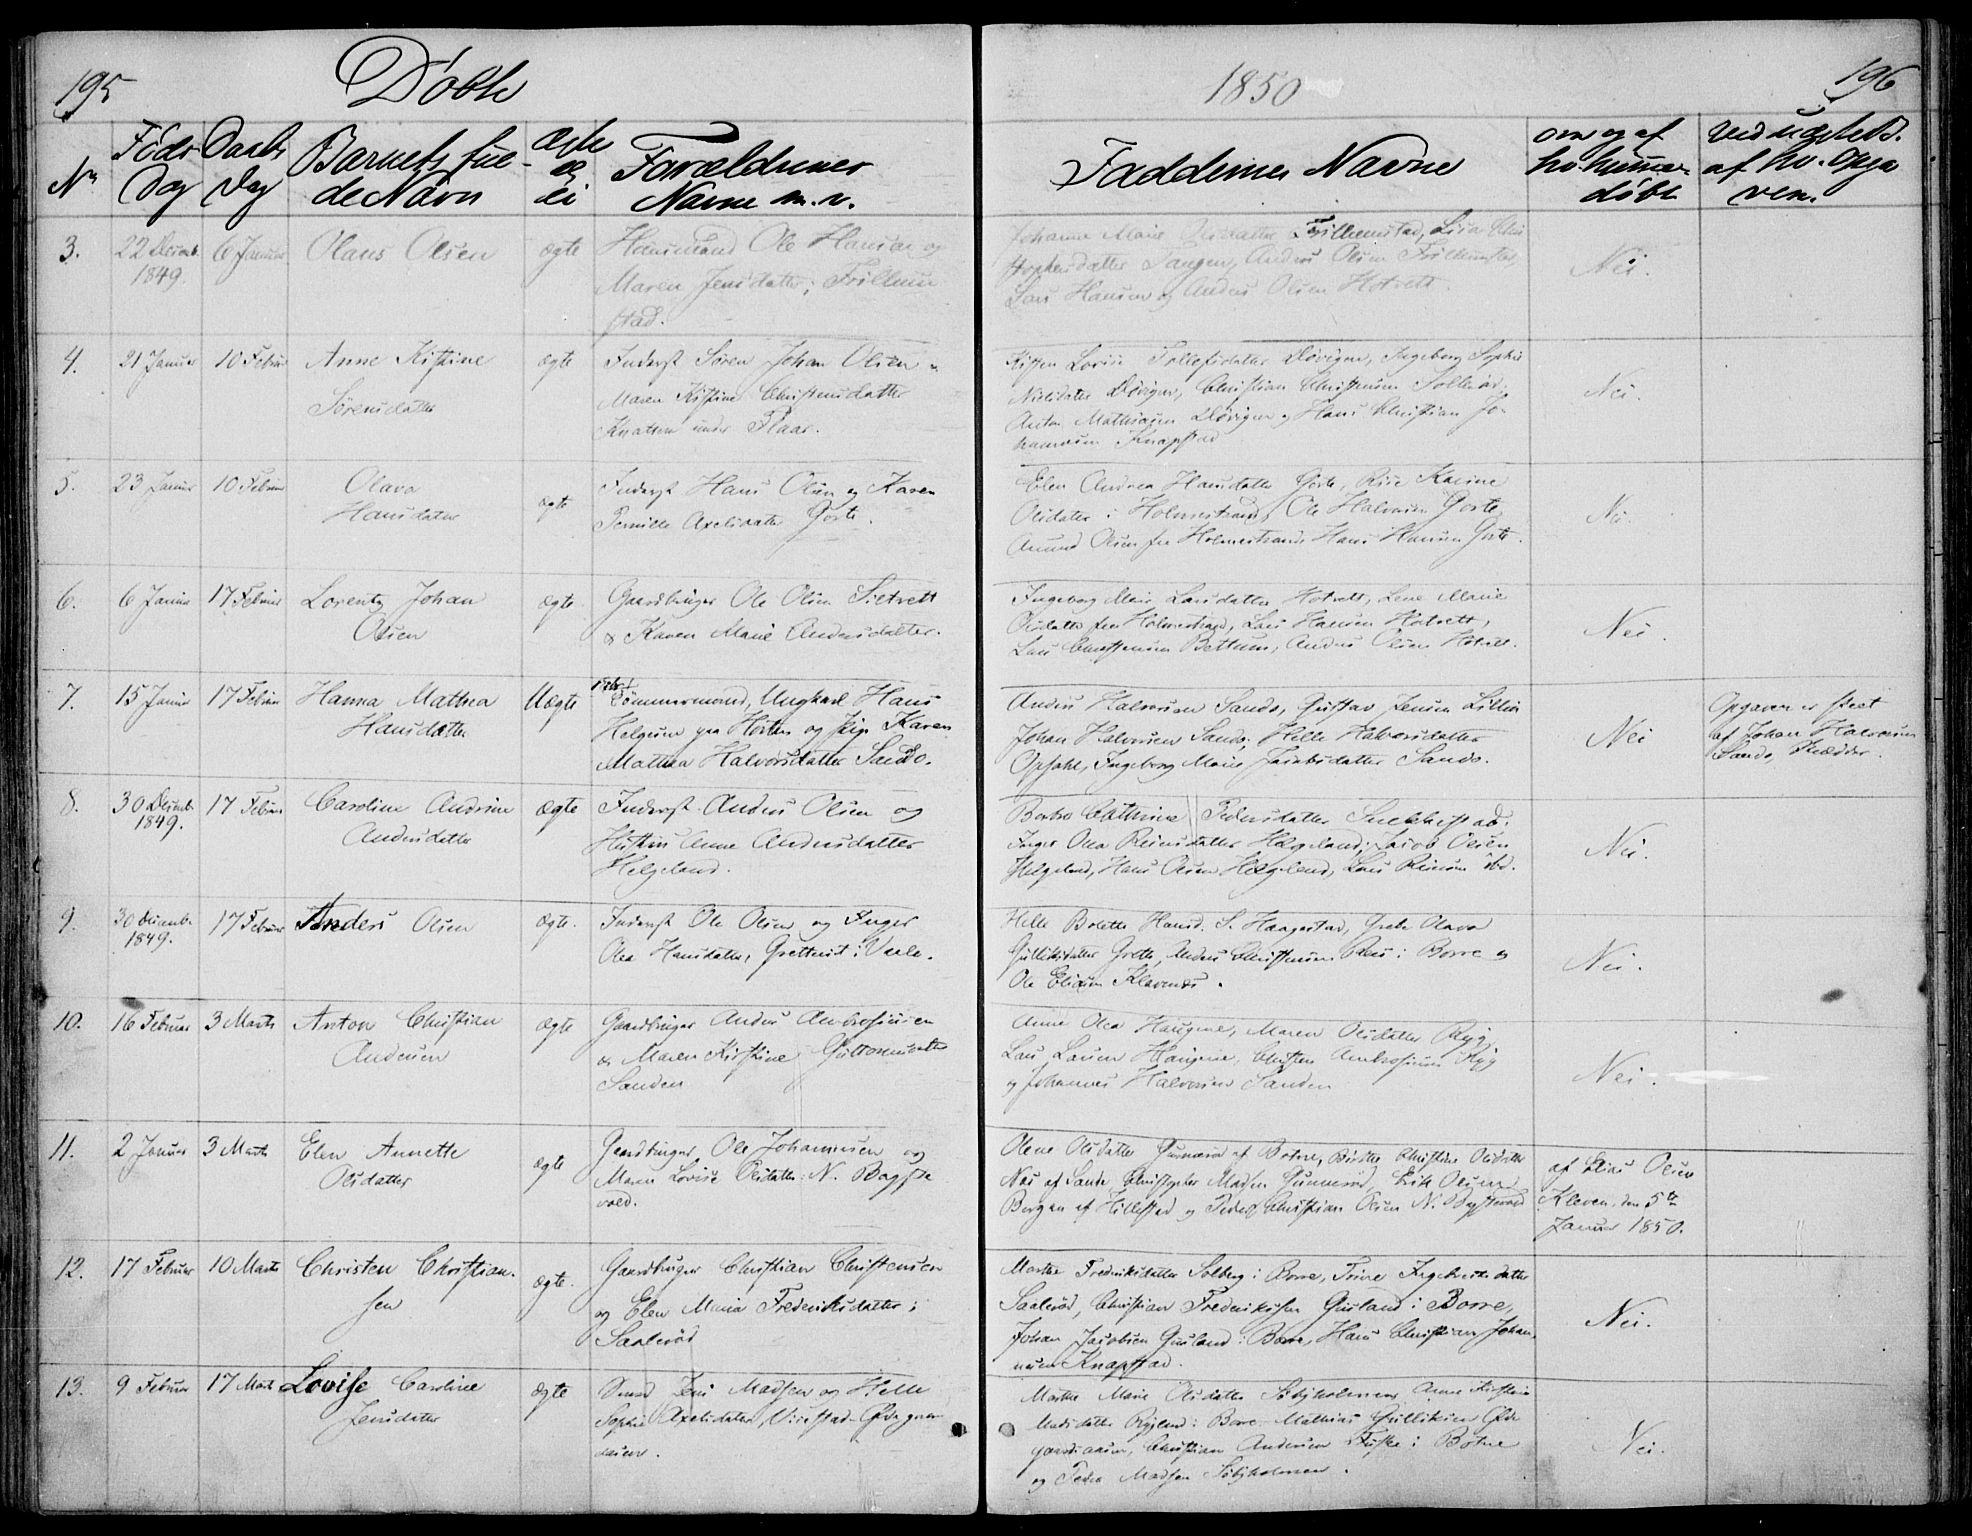 195
Döbte
1850
196
No
Föds
Dag
Daabs
Dag
Barnets ful-
de Navn
ægte
eller
ei
Forældrenes
Navne m. v.
Faddernes Navne
om og af
hv. hjemme-
döbt
ved uægteb.
af hv. Opga
ven.
3.
22 Decemb.
1849.
6 Januar
Olaus Olsen
ægte
Huusmand Ole Hansen og
Maren Jensdatter, Frillum
stad.
Johanne Marie Olsdatter
Lars Hansen og Anders Olsen Hotvett.
Nei.
4.
21 Januar
10 Februar
Anne Kistine
Sørensdatter
ægte
Inderst Søren Johan Olsen
Maren Kistine Christensdatter
Knatten under Flaar.
Kisten Lovise Tollefsdatter Døvigen, Ingeborg Sophie
Nielsdatter Døvigen, Christian Christensen Solleröd,
Anton Mathisen Døvigen og Hans Christian Jo-
hannesen Knapstad
Nei.
5.
23 Januar
10 Februar
Olava
Hansdatter
ægte
Inderst Hans Olsen og Karen
Pernille Axelsdatter Gorte.
Elen Andrea Hansdatter Gorte, Karine
Olsdatter i Holmestrand, Ole Halvorsen Gorte,
Amund Olsen fra Holmestrand, Hans Hansen Gorte.
Nei.
6.
6 Januar
17 Februar
Lorentz Johan
Olsen
ægte
Gaardbruger Ole Olsen Sletvett
& Karen Marie Andersdatter.
Ingeborg Marie Larsdatter Hotvett, Lene Marie
Olsdatter fra Holmestrand, Lars Hansen Hotvett,
Lars Christensen Bettum, Anders Olsen Hotvett.
Nei.
7.
15 Januar
17 Februar
Hanna Mathea
Hansdatter
Uægte
Tömmermand, Ungkarl Hans
Helgesen paa Horten og Pige Karen
Mathea Halvorsdatter Sando.
Anders Halvorsen Sando, Gustav Jensen Lillén
Johan Halvorsen Sando, Helle Halvorsdatter
Opsahl, Ingeborg Marie Jacobsdatter Sando.
Nei
Opgaven er skeet
af Johan Halvorsen
Sando, Fadder.
8.
30 Decemb.
1849.
17 Februar
Caroline Andrine
Andersdatter
ægte
Inderst Anders Olsen og
Hustru Anne Andersdatter
Helgeland.
Berthe Cathrine Pedersdatter
Inger Olea Reiersdatter Helgeland, Jacob Olsen
Helgeland, Hans Olsen Helgeland, Lars Reiersen ibd.
Nei.
9.
30 Decemb.
1849.
17 Februar
Anders Olsen
ægte.
Inderst Ole Olsen og Inger
Olea Hansdatter, Gretteröd i Vaale.
Helle Bolette Hansd. S. Haugestad, Olava
Gulliksdatter Grette, Anders Christensen i Borre og
Ole Eliasen Klevenes.
Nei.
10.
16 Februar
3 Marts
Anton Christian
Andersen
ægte
Gaardbruger Anders Ambrosiusen
& Maren Kirstine Guttormsdatter
Sanden
Anne Olea Haugene, Maren Olsdatter Ryg,
Lars Larsen Haugene, Christen Ambrosiusen Ryg
og Johannes Halvorsen Sanden
Nei.
11.
2 Januar
3 Marts
Elen Annette
Olsdatter
ægte
Gaardbruger Ole Johannesen og
Maren Lovise Olsdatter N. Bagste
vold.
Olene Olsdatter Gunneröd af Botne, Birthe Christine Olsdatter
Næs af Sande, Christopher Madsen Gunneröd, Erik Olsen
Bergan af Hillestad og Peder Christian Olsen N. Bagstevold
af Elias Olsen
Kleven, den 5te
Januar 1850.
12.
17 Februar
10 Marts
Christen Christian-
sen
ægte.
Gaardbruger Christian Christensen
og Elen Maria Frederiksdatter,
Saaleröd
Marthe Frederiksdatter Solberg i Borre, Trine Ingebretsdatter
Saaleröd, Christian Frederiksen Gusland i Borre,
Johan Jacobsen Gusland i Borre, Hans Christian Johan-
nesen Knapstad.
Nei.
13.
9 Februar
17 Marts
Lovise Caroline
Jensdatter
ægte
Jens Madsen og Helle
Sophie Axelsdatter, Virestad
Marthe Marie Olsdatter Söbyholmen, Anne Kirstine
Madsdatter Rygland i Borre, Mathias Gulliksen
Christian Andersen i Botne
og Peder Madsen Söbyholmen.
Nei.